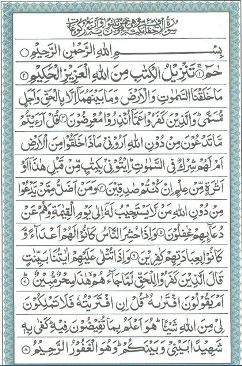 بِسْمِ اللهِ الرَّحْمٰنِ الرَّحِيْمِ
حٰمٓ ۚ تَنْزِيْلُ الْكِتٰبِ مِنَ اللهِ الْعَزِيْزِ الْحَكِيْمِ
مَا خَلَقْنَا السَّمٰوٰتِ وَالْاَرْضَ وَمَا بَيْنَهُمَآ اِلَّا بِالْحَقِّ وَاَجَلٍ
مُّسَمًّى وَالَّذِيْنَ كَفَرُوْا عَمَّآ اُنْذِرُوْا مُعْرِضُوْنَ قُلْ اَرَءَيْتُمْ
مَّا تَدْعُوْنَ مِنْ دُوْنِ اللهِ اَرُوْنِيْ مَاذَا خَلَقُوْا مِنَ الْاَرْضِ
اَمْ لَهُمْ شِرْكٌ فِي السَّمٰوٰتِ اِيْتُوْنِيْ بِكِتٰبٍ مِّنْ قَبْلِ هٰذَآ اَوْ
اَثٰرَةٍ مِّنْ عِلْمٍ اِنْ كُنْتُمْ صٰدِقِيْنَ وَمَنْ اَضَلُّ مِمَّنْ يَّدْعُوْا
مِنْ دُوْنِ اللهِ مَنْ لَّا يَسْتَجِيْبُ لَهٗٓ اِلٰى يَوْمِ الْقِيٰمَةِ وَهُمْ عَنْ
دُعَآئِهِمْ غٰفِلُوْنَ وَاِذَا حُشِرَ النَّاسُ كَانُوْا لَهُمْ اَعْدَآءً وَّ
كَانُوْا بِعِبَادَتِهِمْ كٰفِرِيْنَ وَاِذَا تُتْلٰى عَلَيْهِمْ اٰيٰتُنَا بَيِّنٰتٍ
قَالَ الَّذِيْنَ كَفَرُوْا لِلْحَقِّ لَمَّا جَآءَهُمْ هٰذَا سِحْرٌ مُّبِيْنٌ
اَمْ يَقُوْلُوْنَ افْتَرٰىهُ قُلْ اِنِ افْتَرَيْتُهٗ فَلَا تَمْلِكُوْنَ
لِيْ مِنَ اللهِ شَيْئًا هُوَ اَعْلَمُ بِمَا تُفِيْضُوْنَ فِيْهِ كَفٰى بِهٖ
شَهِيْدًۢا بَيْنِيْ وَبَيْنَكُمْ وَهُوَ الْغَفُوْرُ الرَّحِيْمُ